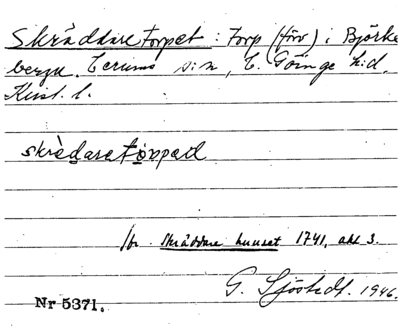 Skräddaretorpet : Torp (förv) i Björke
berga. Loenums s:n, V. Göinge h:d,
Krist. l.
skrædaretorped
/br. skräddare huuset 1741, akt 3.
G. Sjöstedt. 1946.
Nr 5371.